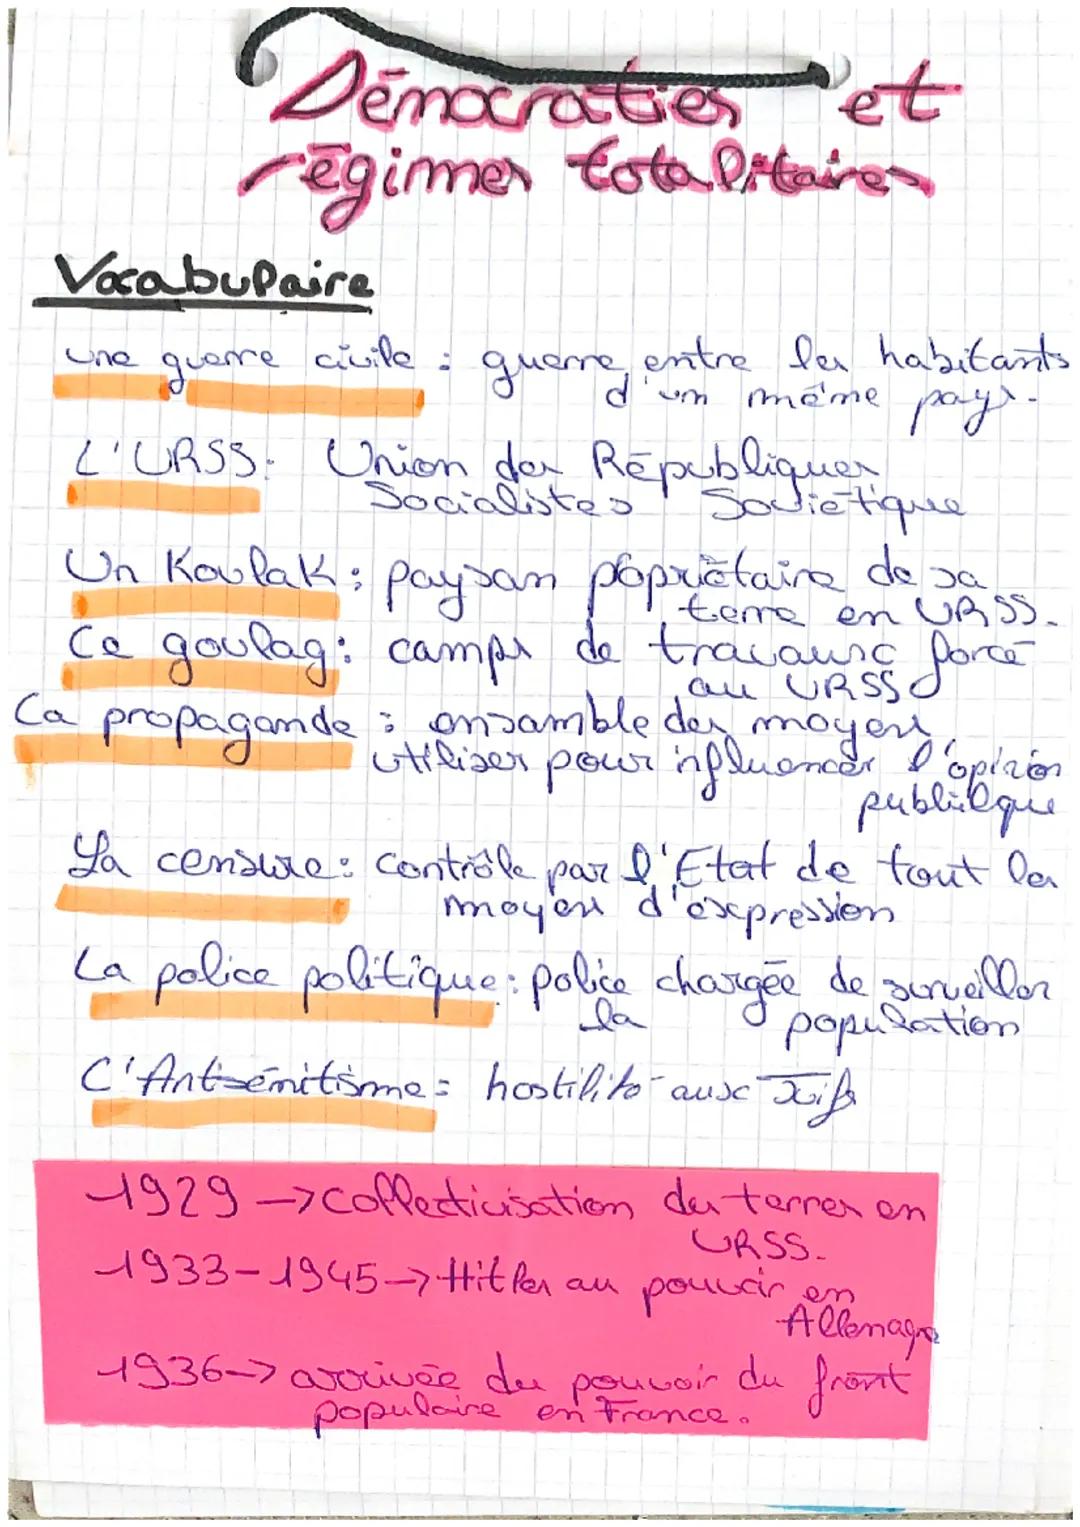 Démocraties et
régimes totalitaires
Vocabulaire
une guerre civile : guerre entre les habitants
d'un même pays.
L'URSS : Union des Républiques
Socialistes Soviétique
Un Koulak : paysan popriétaire de sa
terre en URSS.
Le goulag : camps de travaux forcé
au URSS
La propagande : ensamble des moyens
utiliser pour influencer l'opinion
publiique
La censure : contrôle par l'Etat de tout les
moyens d'expression
La police politique : police chargée de surveiller
la population
L'Antisémitisme = hostilité aux Juifs
1929 -> collectivisation des terres en
URSS.
1933-1945 -> Hitler au pouvoir en
Allemagne
1936 -> arrivée du pouvoir du front
populaire en France.